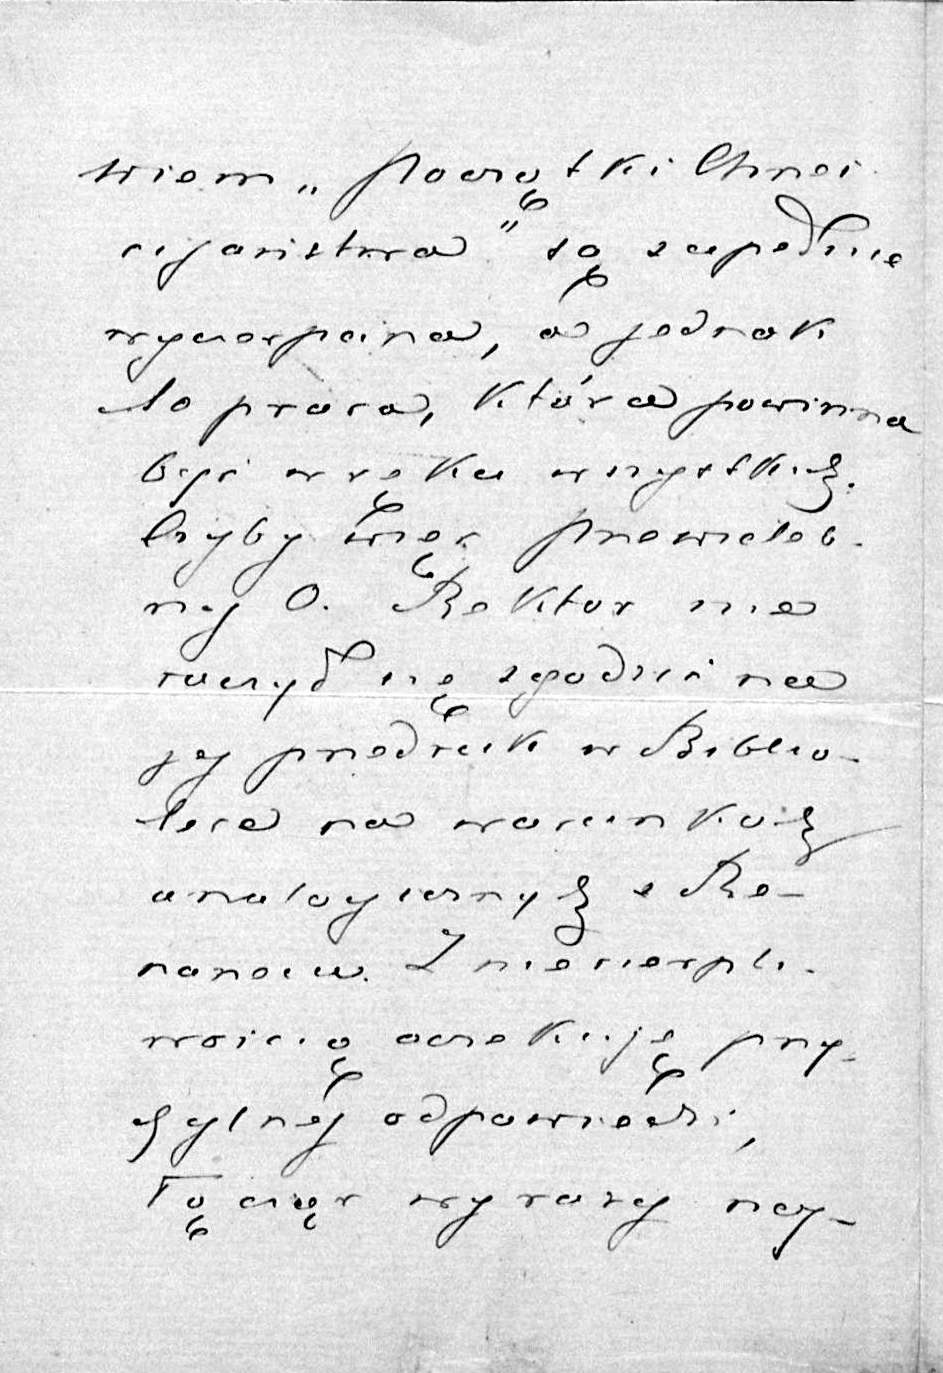 wiem „Początki Chrei
cijaństwa” są zupełnie
wyczerpane, a jednak
to praca, która powinna
być w ręku wszystkich.
Czyby więc Przewieleb-
ny O. Rektor nie
raczył się zgodzić na
jej przedruk w Biblio-
tece na warunkach
analogicznych z Re-
nanem. Z niecierpli-
wością oczekuję przy-
chylnej odpowiedzi,
łącząc wyrazy naj-